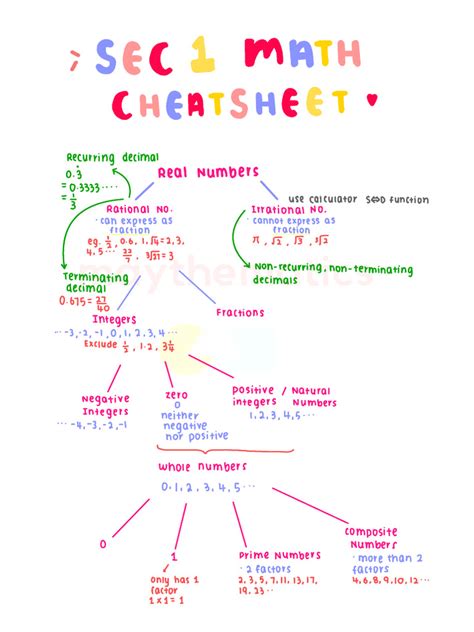 SEC 1 MATH
CHEATSHEET
Recurring decimal
0.3̇
= 0.3333...
= 1/3
Real Numbers
use calculator S⇔D function
Rational No.
· can express as
fraction
eg. 1/2, 0.6, 1, √4=2, 3,
4, 5... 22/7, ³√27=3
Irrational No.
· cannot express as
fraction
π, √2, √3, ³√2
Non-recurring, non-terminating
decimals
Terminating
decimal
0.675 = 27/40
Integers
... -3, -2, -1, 0, 1, 2, 3, 4 ...
Exclude 1/2, 1.2, 3 1/4
Fractions
Negative
Integers
... -4, -3, -2, -1
zero
0
neither
negative
nor positive
positive / Natural
integers Numbers
1, 2, 3, 4, 5...
whole numbers
0, 1, 2, 3, 4, 5...
0
1
only has 1
factor
1 x 1 = 1
Prime Numbers
· 2 factors
2, 3, 5, 7, 11, 13, 17,
19, 23..
Composite
Numbers
· more than 2
factors
4, 6, 8, 9, 10, 12...